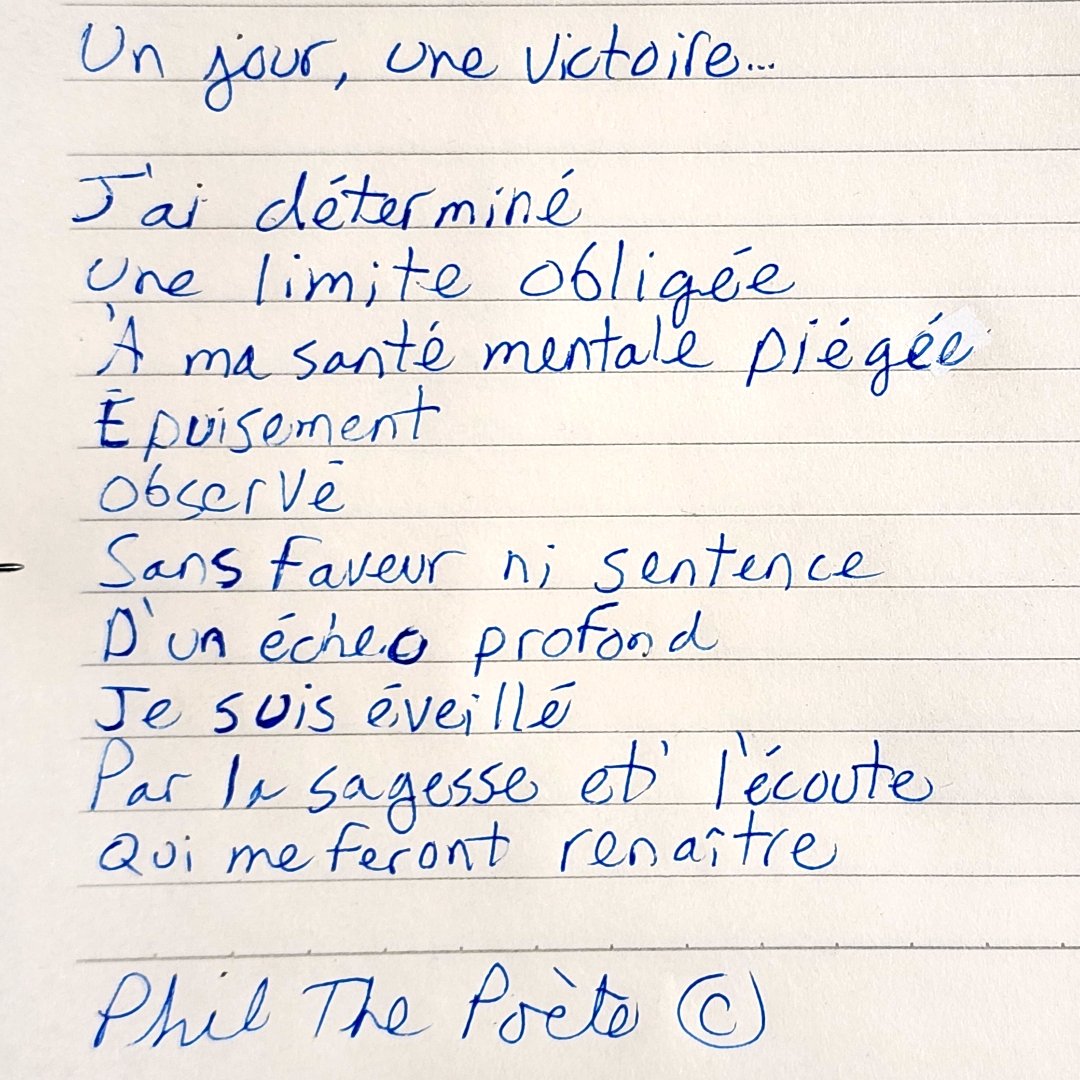 Un jour, une victoire...
J'ai déterminé
Une limite obligée
À ma santé mentale piégée
Épuisement
Observé
Sans faveur ni sentence
D'un échec profond
Je suis éveillé
Par la sagesse et l'écoute
Qui me feront renaître
Phil The Poète ©